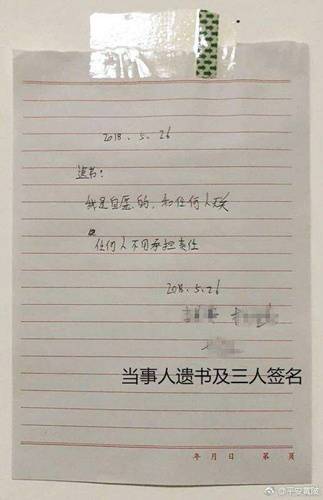 2018.5.26
遗书：
我是自愿的，和任何人无关
任何人不用承担责任
2018.5.26
当事人遗书及三人签名
年 月 日 第 页
@平安黄陂